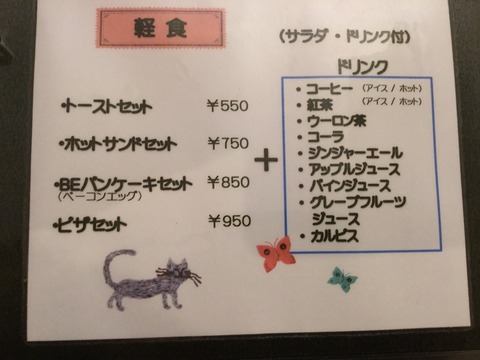 軽食
(サラダ・ドリンク付)
・トーストセット ¥550
・ホットサンドセット ¥750
・BEパンケーキセット ¥850
(ベーコンエッグ)
・ピザセット ¥950
+
ドリンク
・コーヒー (アイス / ホット)
・紅茶 (アイス / ホット)
・ウーロン茶
・コーラ
・ジンジャーエール
・アップルジュース
・パインジュース
・グレープフルーツ
ジュース
・カルピス